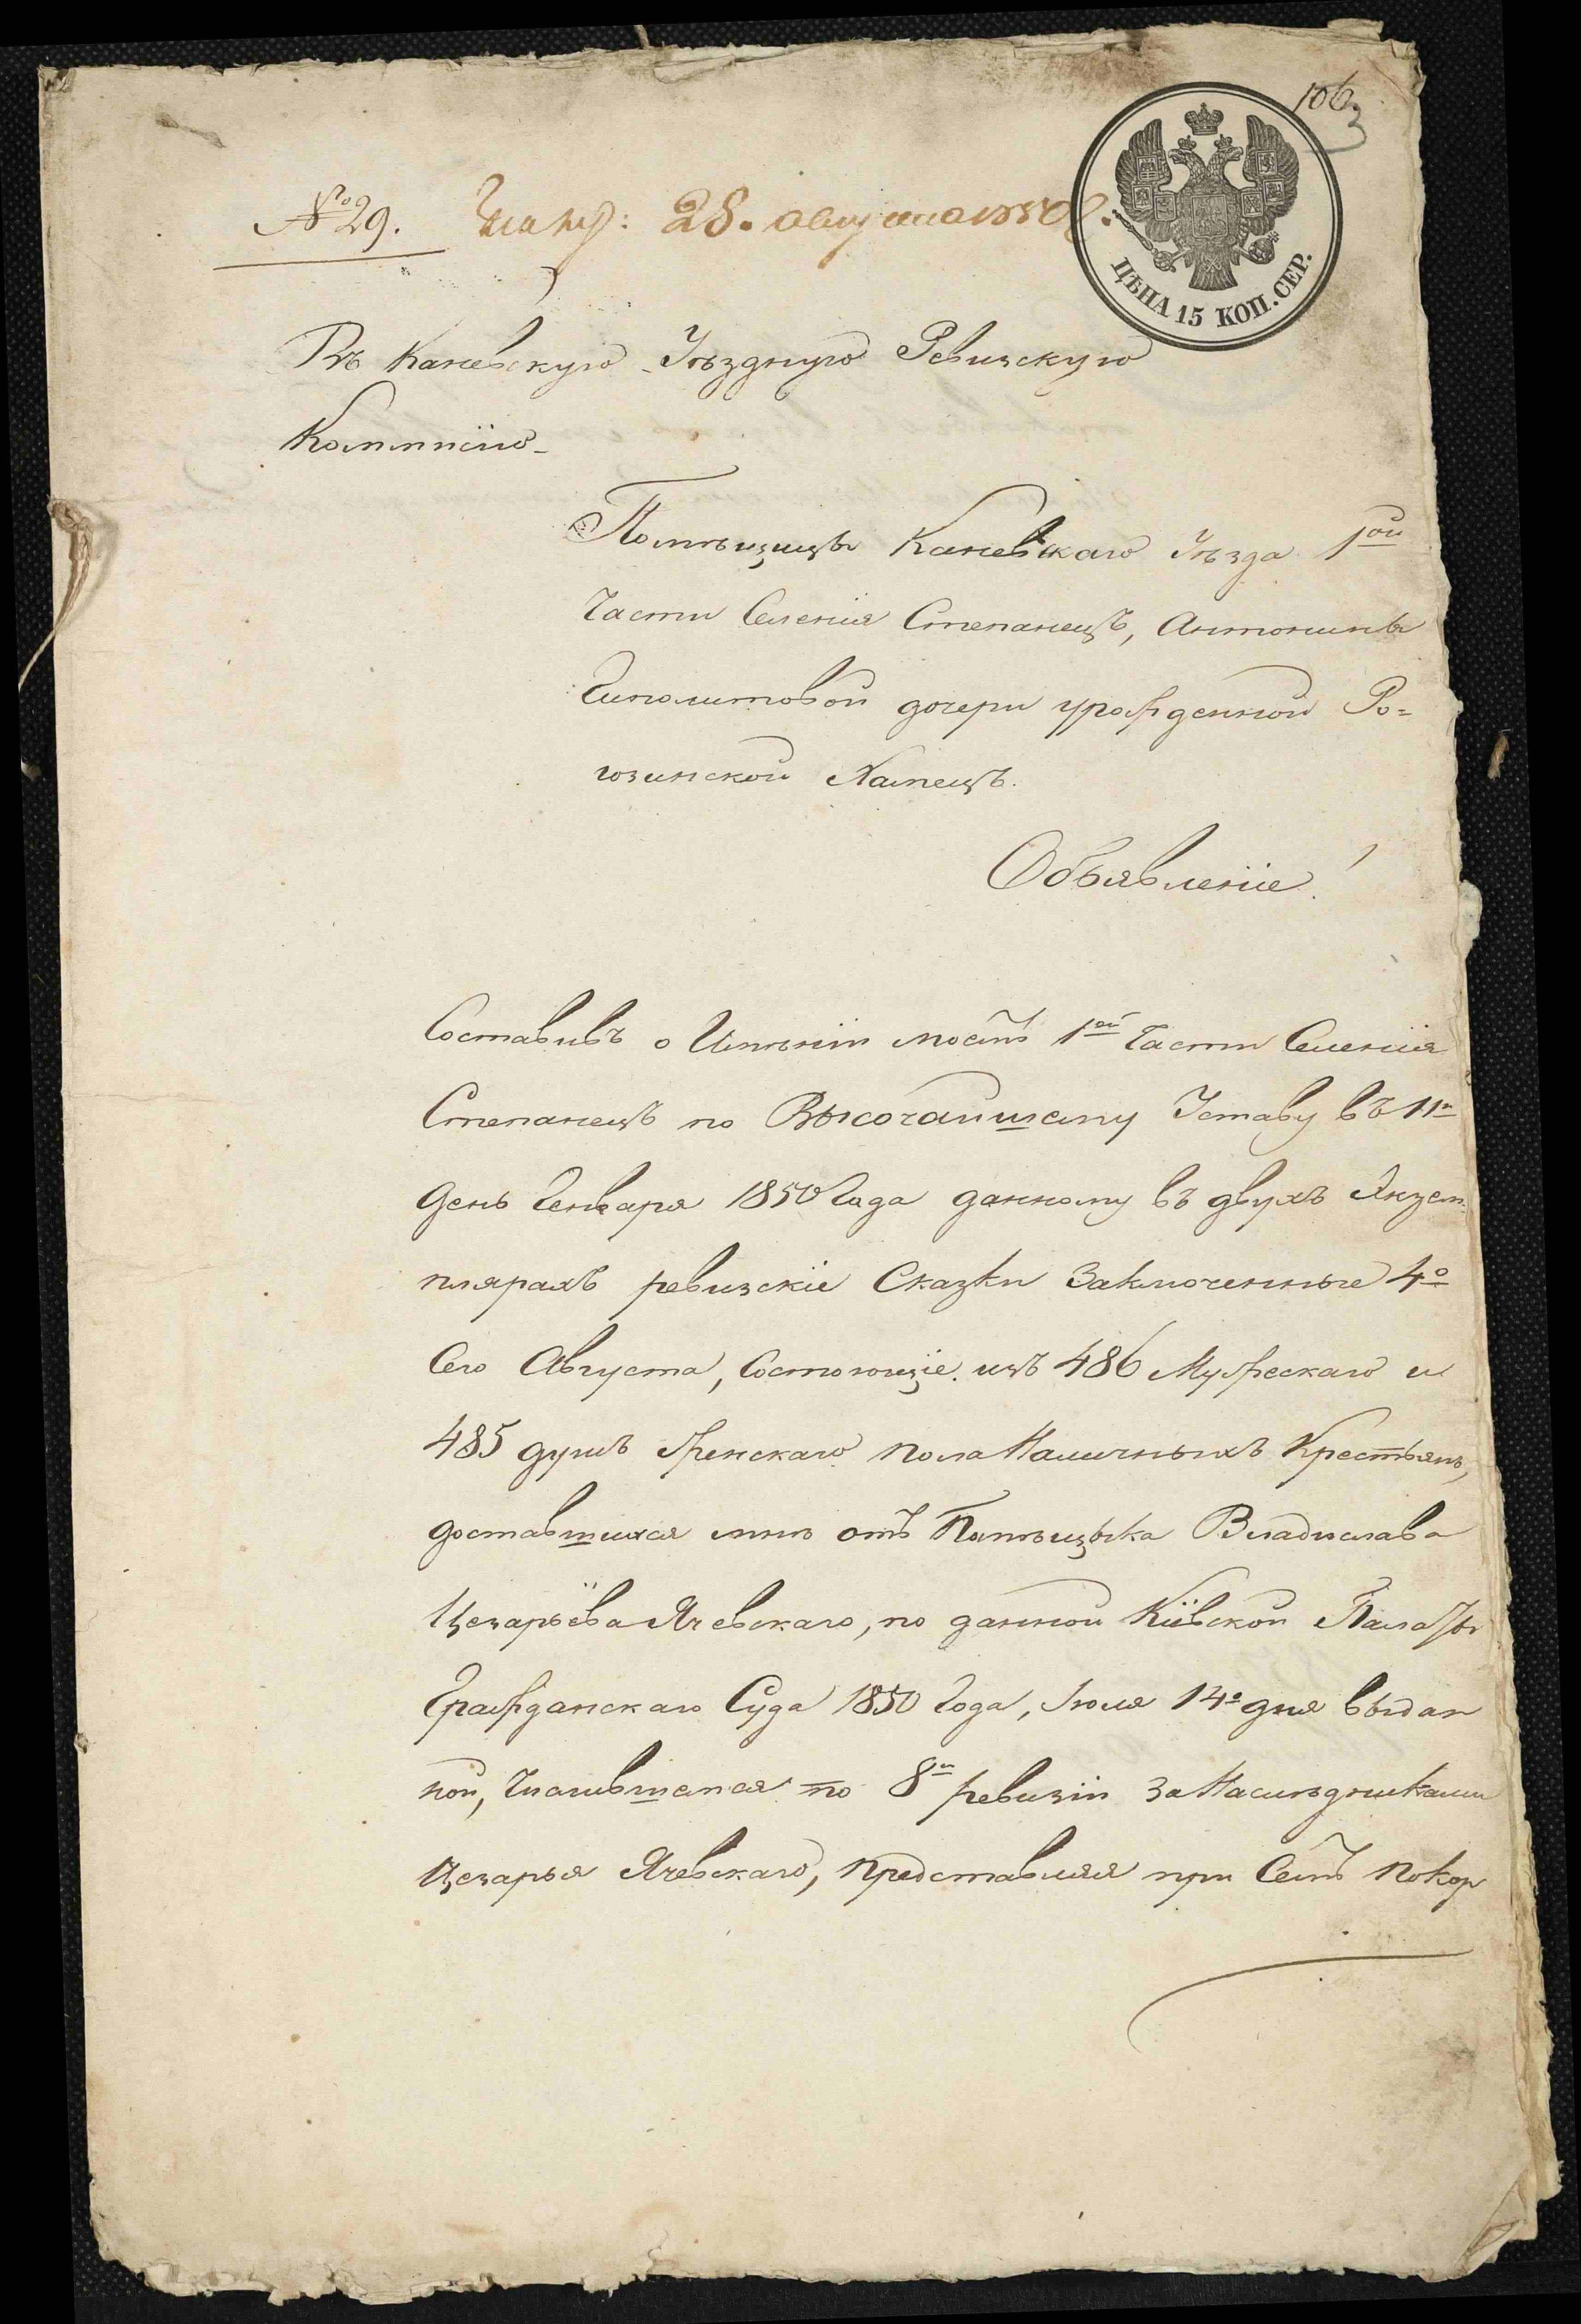 106
№ 29. 28. августа 1850 г.
ЦѢНА 15 КОП. СЕР.
Въ Каневскую Уѣздную Ревизскую
Коммисію
Помѣщицы Каневскаго Уѣзда 1ой
Части Селенія Степанецъ, Антонины
Иполитовой дочери урожденной Ро-
гозинской
Объявленіе!
Составивъ о Имѣніи моемъ 1ой Части Селенія
Степанецъ по Высочайшему Уставу въ 11й
день Генваря 1850 Года данному въ двухъ Екзем-
плярахъ ревизскіе Сказки Заключенные 4о
Сего Августа, Состоющіе изъ 486 Мужескаго и
485 душъ Женскаго пола Наличныхъ Крестьянъ,
доставшихся мнѣ отъ Помѣщика Владислава
Цезарьёва Ячевскаго, по данной Кіевской Палаты
Гражданскаго Суда 1850 Года, Июля 14о дня выдан
ной, Числившемся по 8й ревизіи За Наслѣдниками
Цезарья Ячевскаго, представляя при Семъ покор